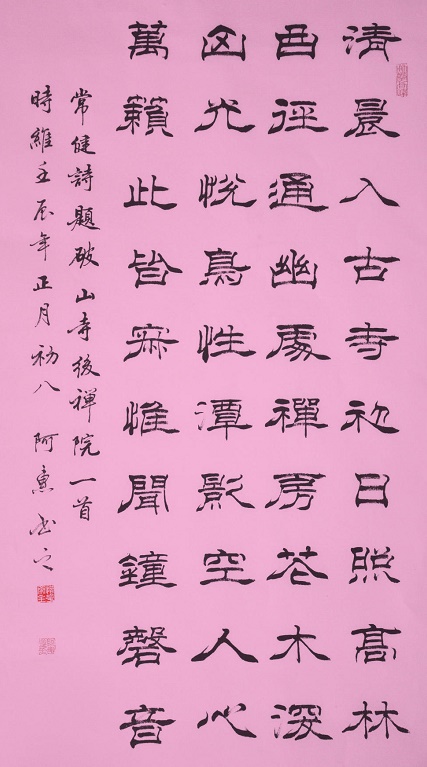 清晨入古寺初日照高林
曲徑通幽處禪房花木深
山光悅鳥性潭影空人心
萬籟此皆寂惟聞鐘磬音
常健詩題破山寺後禪院一首
時維壬辰年正月初八 阿書之